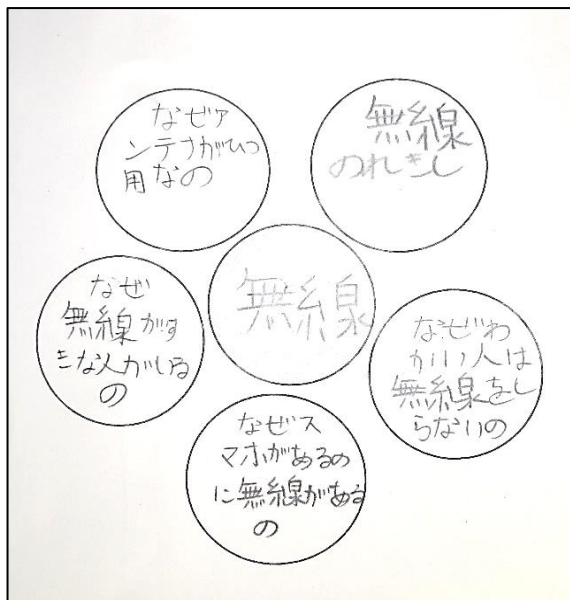 なぜア
ンテナがひつ
用なの
無線
のれきし
無線
なぜ
無線がす
きな人がいる
の
なぜわ
かい人は
無線をし
らないの
なぜス
マホがあるの
に無線がある
の